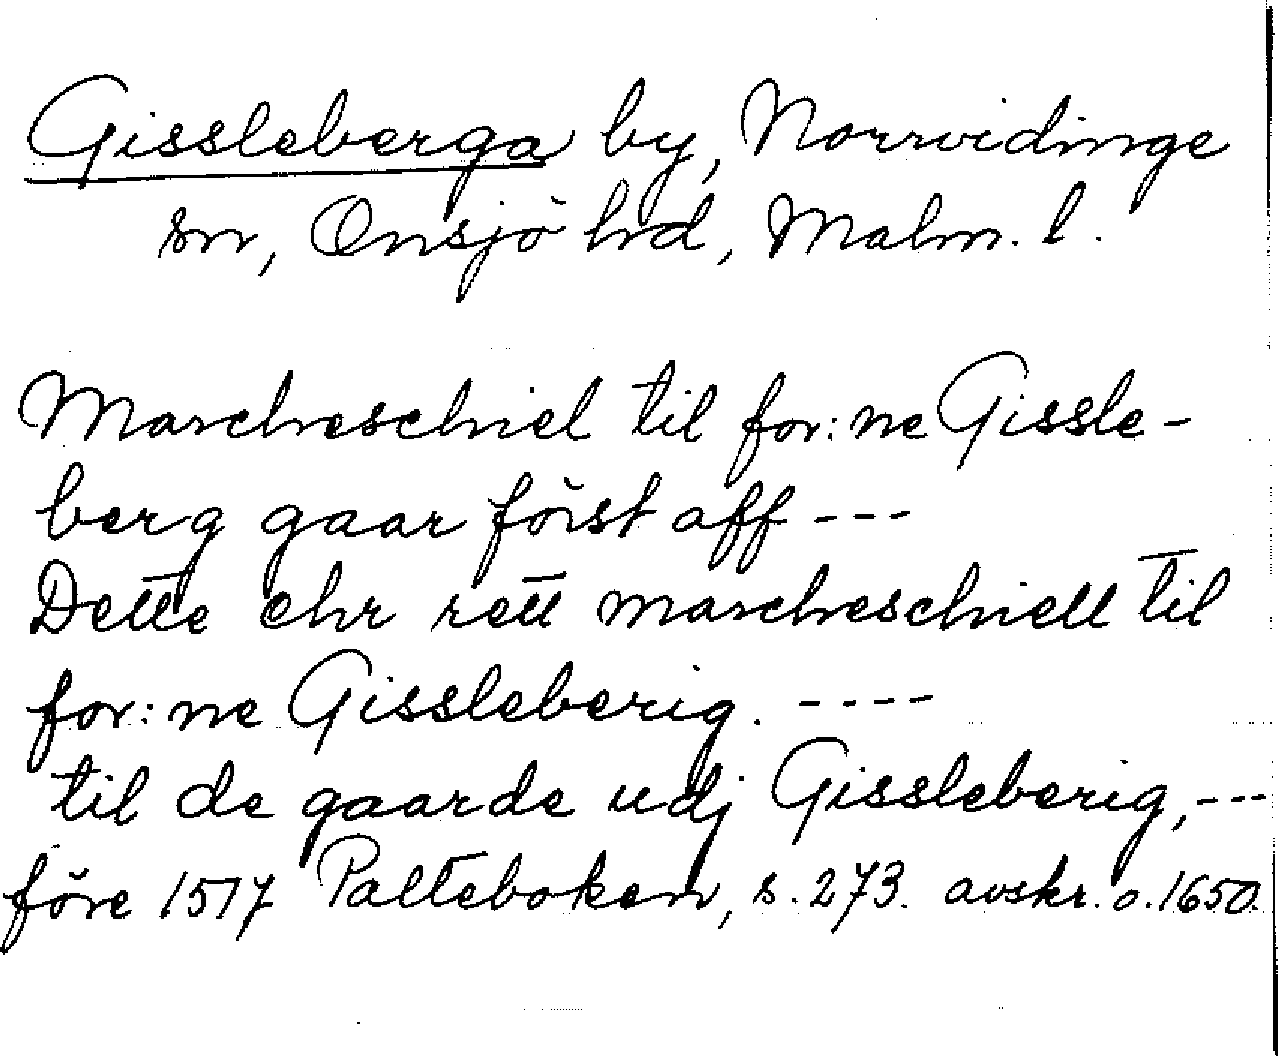 Gissleberga by, Norrvidinge
sn, Onsjö hd, Malm. l.
Marcheschiel til for:ne Gissle-
berg gaar först aff ---
Dette ehr rett marcheschiell til
for:ne Gissleberig. ----
til de gaarde udj Gissleberig, ---
före 1517 Palteboken, s. 273. avskr. o. 1650.